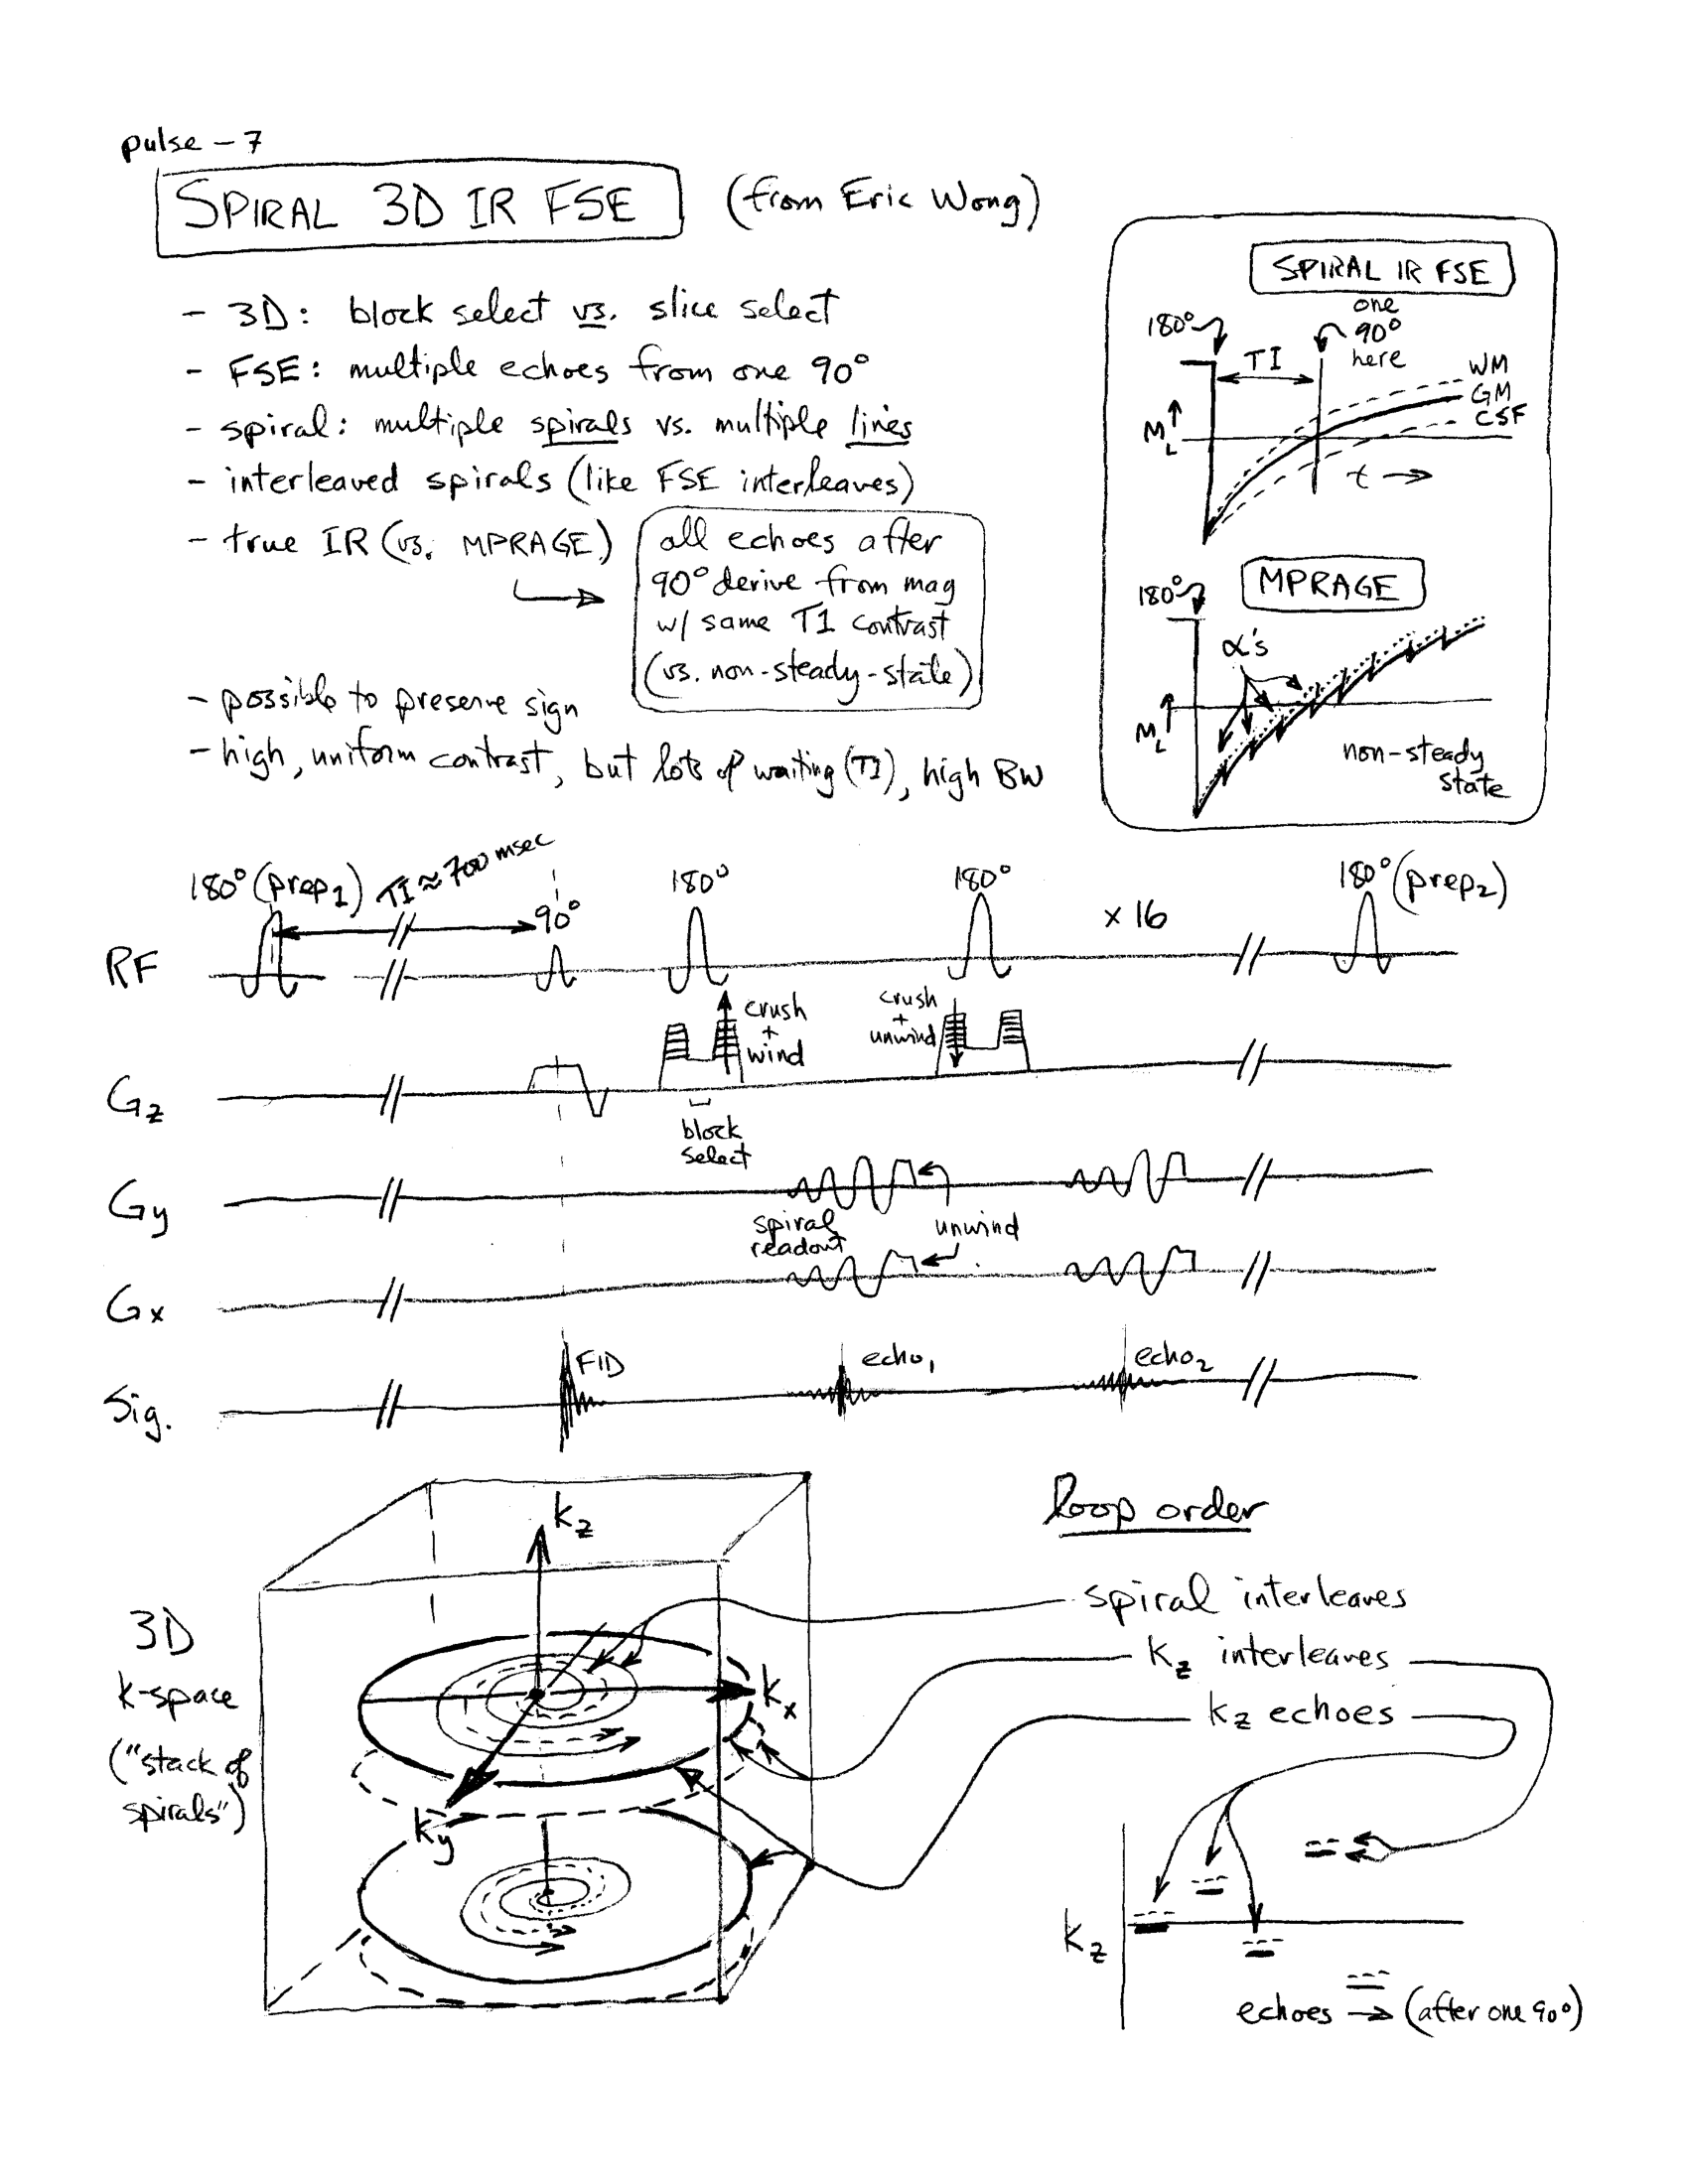 pulse – 7
SPIRAL 3D IR FSE (from Eric Wong)
- 3D: block select vs. slice select
- FSE: multiple echoes from one 90°
- spiral: multiple spirals vs. multiple lines
- interleaved spirals (like FSE interleaves)
- true IR (vs. MPRAGE)
all echoes after
90° derive from mag
w/ same T1 contrast
(vs. non-steady-state)
- possible to preserve sign
- high, uniform contrast, but lots of waiting (TI), high BW
SPIRAL IR FSE
180°
TI
one
90°
here
WM
GM
CSF
M_L ↑
t →
MPRAGE
180°
α's
M_L ↑
non-steady
state
180° (prep₁)
TI ≈ 700 msec
90°
180°
180°
× 16
180° (prep₂)
RF
crush
+
wind
crush
+
unwind
G_z
block
select
G_y
spiral
readout
unwind
G_x
FID
echo₁
echo₂
Sig.
loop order
spiral interleaves
k_z interleaves
k_z echoes
3D
k-space
("stack of
spirals")
k_z
k_x
k_y
k_z
echoes → (after one 90°)